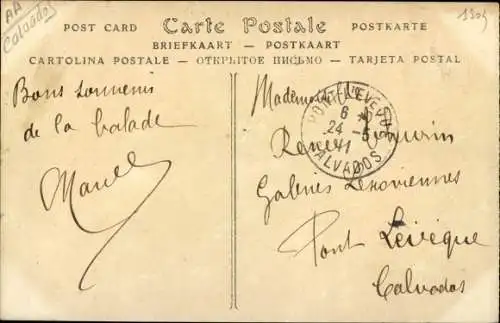 AA
Calvados
1305
POST CARD Carte Postale POSTKARTE
BRIEFKAART — POSTKAART
CARTOLINA POSTALE — ОТКРЫТОЕ ПИСЬМО — TARJETA POSTAL
Bons souvenirs
de la balade
Marcel
Mademoiselle
Renée
Galeries Lexoviennes
Pont Lévêque
Calvados
PONT-L'EVEQUE
6
24 -5
11
CALVADOS